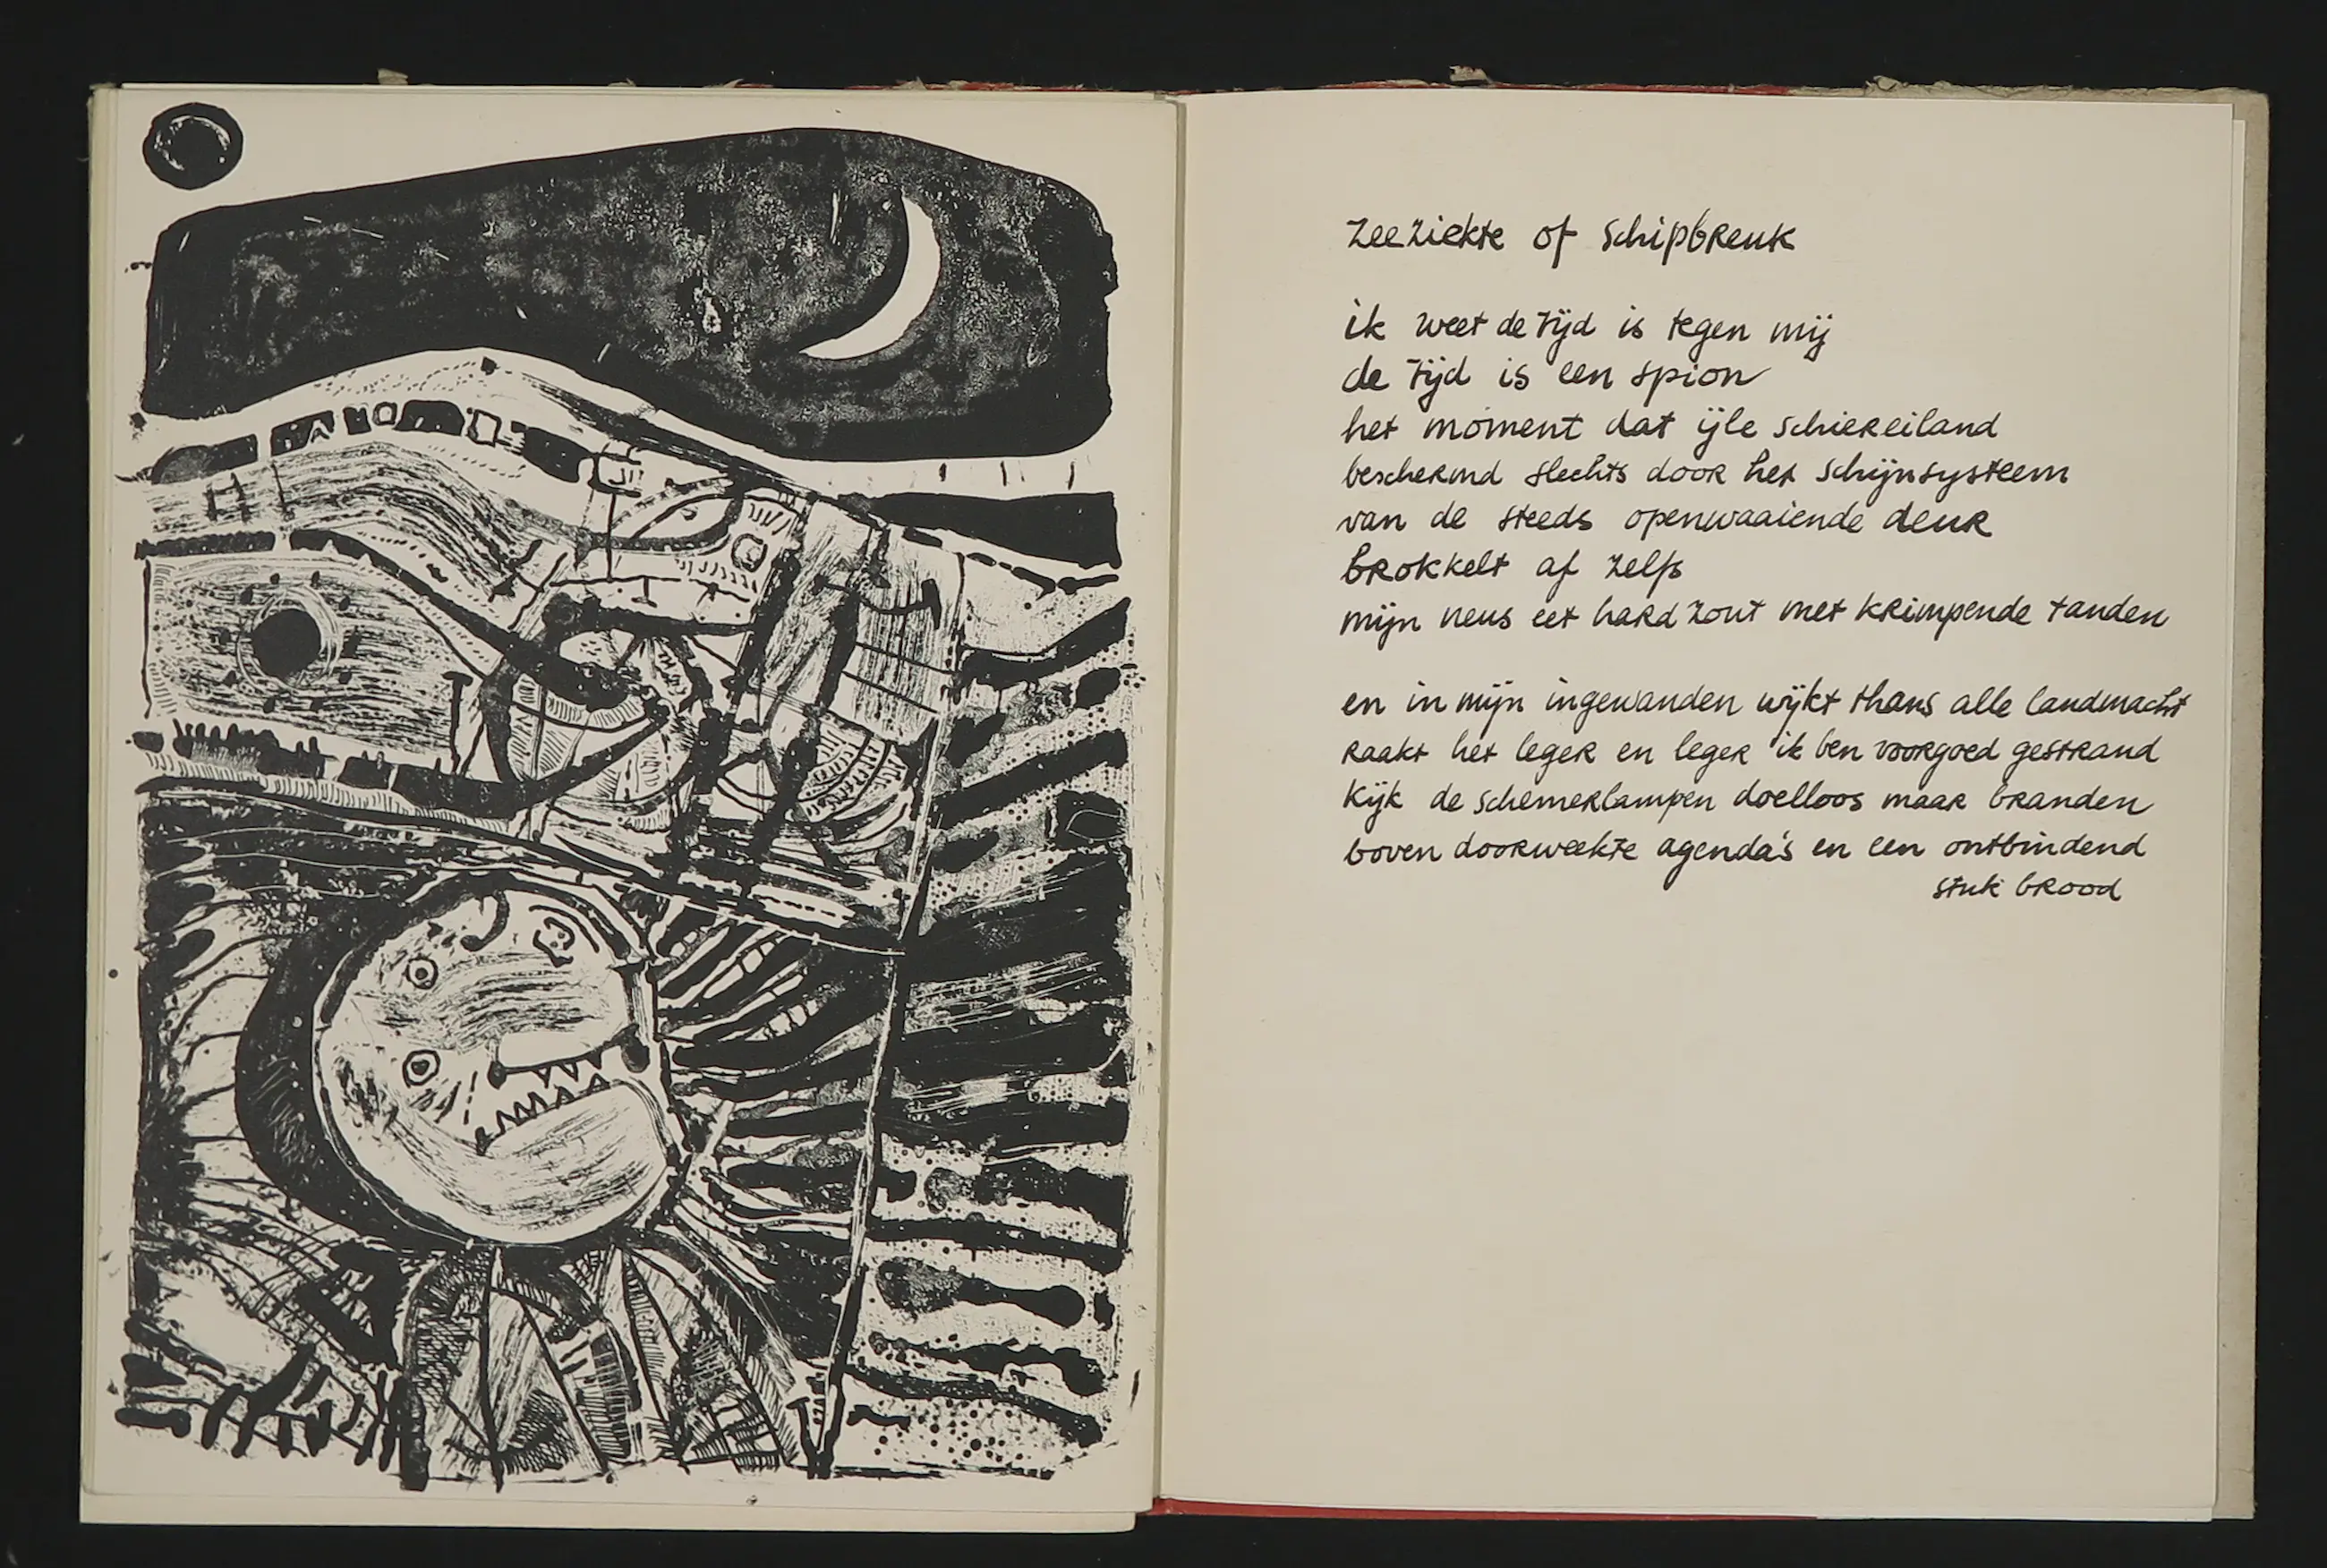 zeeziekte of schipbreuk
ik weet de tijd is tegen mij
de tijd is een spion
het moment dat ijle schiereiland
beschermd slechts door het schijnsysteem
van de steeds openwaaiende deur
brokkelt af zelfs
mijn neus eet hard zout met krimpende tanden
en in mijn ingewanden wijkt thans alle landmacht
raakt het leger en leger ik ben voorgoed gestrand
kijk de schemerlampen doelloos maar branden
boven doorweekte agenda's en een ontbindend
stuk brood